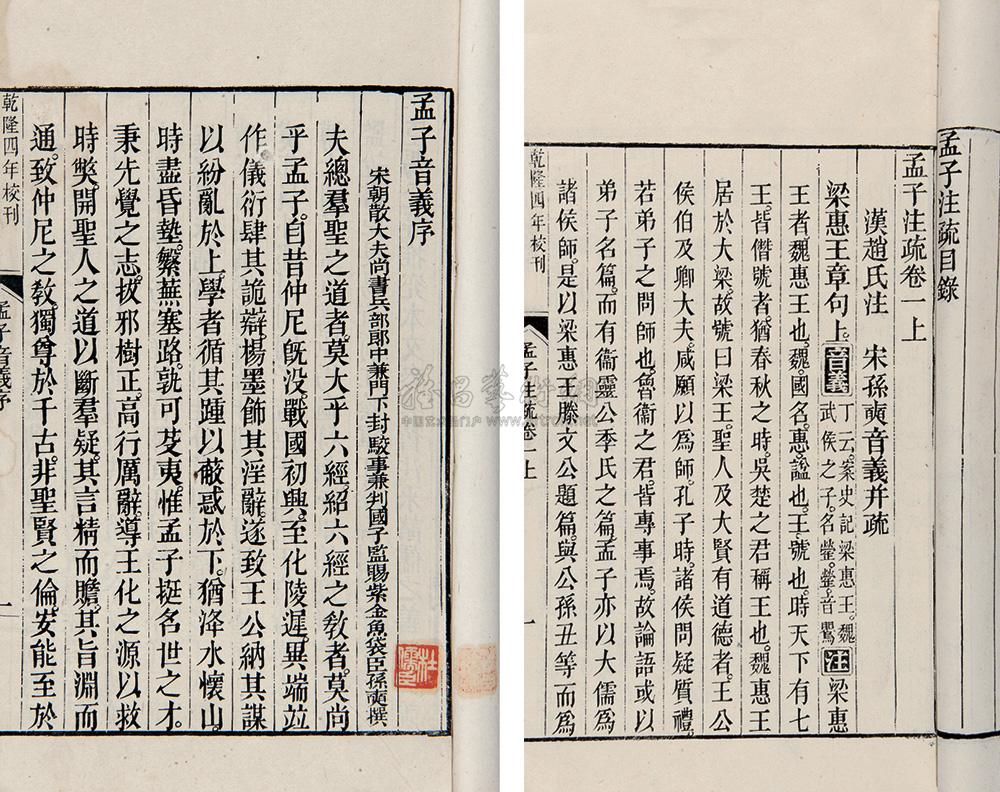 孟子注疏目錄
孟子注疏卷一上
漢趙氏注　宋孫奭音義并疏
梁惠王章句上。音義丁云。案史記梁惠王。魏武侯之子。名罃。罃音鸎注梁惠
王者。魏惠王也。魏。國名。惠。諡也。王。號也。時天下有七
王。皆僭號者。猶春秋之時。吳楚之君稱王也。魏惠王
居於大梁。故號曰梁王。聖人及大賢有道德者。王公
侯伯及卿大夫。咸願以爲師。孔子時。諸侯問疑質禮。
若弟子之問師也。魯衞之君。皆專事焉。故論語或以
弟子名篇。而有衞靈公季氏之篇。孟子亦以大儒爲
諸侯師。是以梁惠王滕文公題篇。與公孫丑等而爲
乾隆四年校刊
孟子注疏卷一上
一
孟子音義序
宋朝散大夫尚書兵部郎中兼門下封駁事兼判國子監賜紫金魚袋臣孫奭撰
夫總羣聖之道者。莫大乎六經。紹六經之敎者。莫尚
乎孟子。自昔仲尼旣没。戰國初興。至化陵遲。異端竝
作。儀衍肆其詭辯。楊墨飾其淫辭。遂致王公納其謀
以紛亂於上。學者循其踵以蔽惑於下。猶洚水懷山。
時盡昏墊。繁蕪塞路。孰可芟夷。惟孟子挺名世之才。
秉先覺之志。拔邪樹正。高行厲辭。導王化之源以救
時獘。開聖人之道以斷羣疑。其言精而贍。其旨淵而
通。致仲尼之敎。獨尊於千古。非聖賢之倫。安能至於
乾隆四年校刊
孟子音義序
一